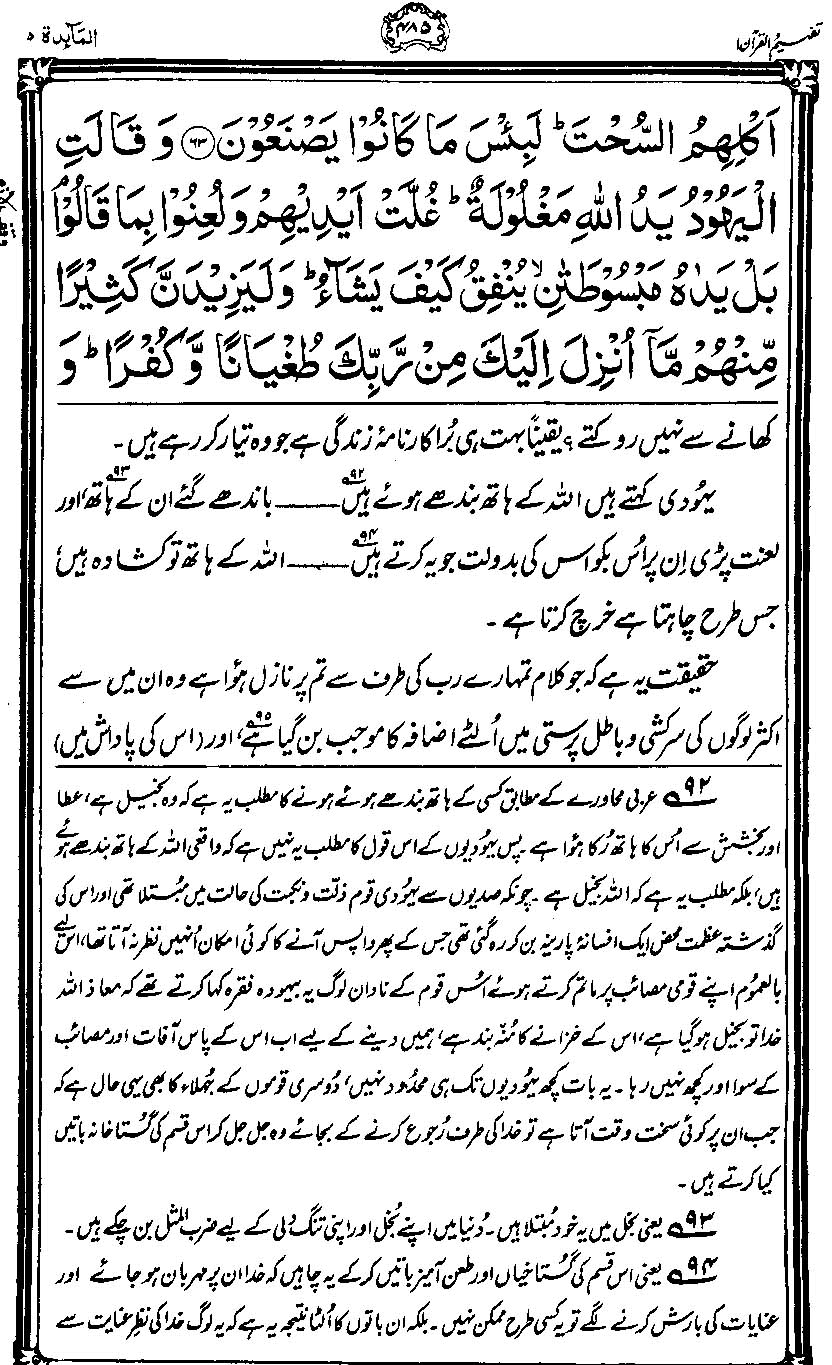 تفہیم القرآن ۱
۴۸۵
المآئدۃ ۵
اَكْلِهِمُ السُّحْتَ ؕ لَبِئْسَ مَا كَانُوْا يَصْنَعُوْنَ ﴿۶۳﴾ وَ قَالَتِ
الْيَهُوْدُ يَدُ اللّٰهِ مَغْلُوْلَةٌ ؕ غُلَّتْ اَيْدِيْهِمْ وَ لُعِنُوْا بِمَا قَالُوْا ۘ
بَلْ يَدٰهُ مَبْسُوْطَتٰنِ ۙ يُنْفِقُ كَيْفَ يَشَآءُ ؕ وَ لَيَزِيْدَنَّ كَثِيْرًا
مِّنْهُمْ مَّاۤ اُنْزِلَ اِلَيْكَ مِنْ رَّبِّكَ طُغْيَانًا وَّ كُفْرًا ؕ وَ
کھانے سے نہیں روکتے؟ یقیناً بہت ہی بُرا کارنامۂ زندگی ہے جو وہ تیار کر رہے ہیں۔
یہودی کہتے ہیں اللہ کے ہاتھ بندھے ہوئے ہیں ۹۲ـــــ باندھے گئے ان کے ہاتھ ۹۳، اور
لعنت پڑی اِن پر اُس بکواس کی بدولت جو یہ کرتے ہیں ۹۴ـــــ اللہ کے ہاتھ تو کشادہ ہیں،
جس طرح چاہتا ہے خرچ کرتا ہے۔
حقیقت یہ ہے کہ جو کلام تمہارے رب کی طرف سے تم پر نازل ہوٴا ہے وہ ان میں سے
اکثر لوگوں کی سرکشی و باطل پرستی میں اُلٹے اضافہ کا موجب بن گیا ہے ۹۵، اور (اس کی پاداش میں)
۹۲ عربی محاورے کے مطابق کسی کے ہاتھ بندھے ہوئے ہونے کا مطلب یہ ہے کہ وہ بخیل ہے، عطا
اور بخشش سے اُس کا ہاتھ رُکا ہوٴا ہے۔ پس یہودیوں کے اس قول کا مطلب یہ نہیں ہے کہ واقعی اللہ کے ہاتھ بندھے ہوئے
ہیں، بلکہ مطلب یہ ہے کہ اللہ بخیل ہے۔ چونکہ صدیوں سے یہودی قوم ذلت و نکبت کی حالت میں مُبتلا تھی اور اس کی
گذشتہ عظمت محض ایک افسانۂ پارینہ بن کر رہ گئی تھی جس کے پھر واپس آنے کا کوئی امکان اُنہیں نظر نہ آتا تھا، اس لیے
بالعموم اپنے قومی مصائب پر ماتم کرتے ہوئے اُس قوم کے نادان لوگ یہ بیہودہ فقرہ کہا کرتے تھے کہ معاذ اللہ
خدا تو بخیل ہو گیا ہے، اس کے خزانے کا مُنہ بند ہے، ہمیں دینے کے لیے اب اس کے پاس آفات اور مصائب
کے سوا اور کچھ نہیں رہا۔ یہ بات کچھ یہودیوں تک ہی محدود نہیں، دُوسری قوموں کے جُہلاء کا بھی یہی حال ہے کہ
جب ان پر کوئی سخت وقت آتا ہے تو خدا کی طرف رُجوع کرنے کے بجائے وہ جل جل کر اس قسم کی گستاخانہ باتیں
کیا کرتے ہیں۔
۹۳ یعنی بخل میں یہ خود مُبتلا ہیں۔ دُنیا میں اپنے بُخل اور اپنی تنگ دلی کے لیے ضرب المثل بن چکے ہیں۔
۹۴ یعنی اس قسم کی گستاخیاں اور طعن آمیز باتیں کر کے یہ چاہیں کہ خدا ان پر مہربان ہو جائے اور
عنایات کی بارش کرنے لگے تو یہ کسی طرح ممکن نہیں۔ بلکہ ان باتوں کا اُلٹا نتیجہ یہ ہے کہ یہ لوگ خدا کی نظرِ عنایت سے